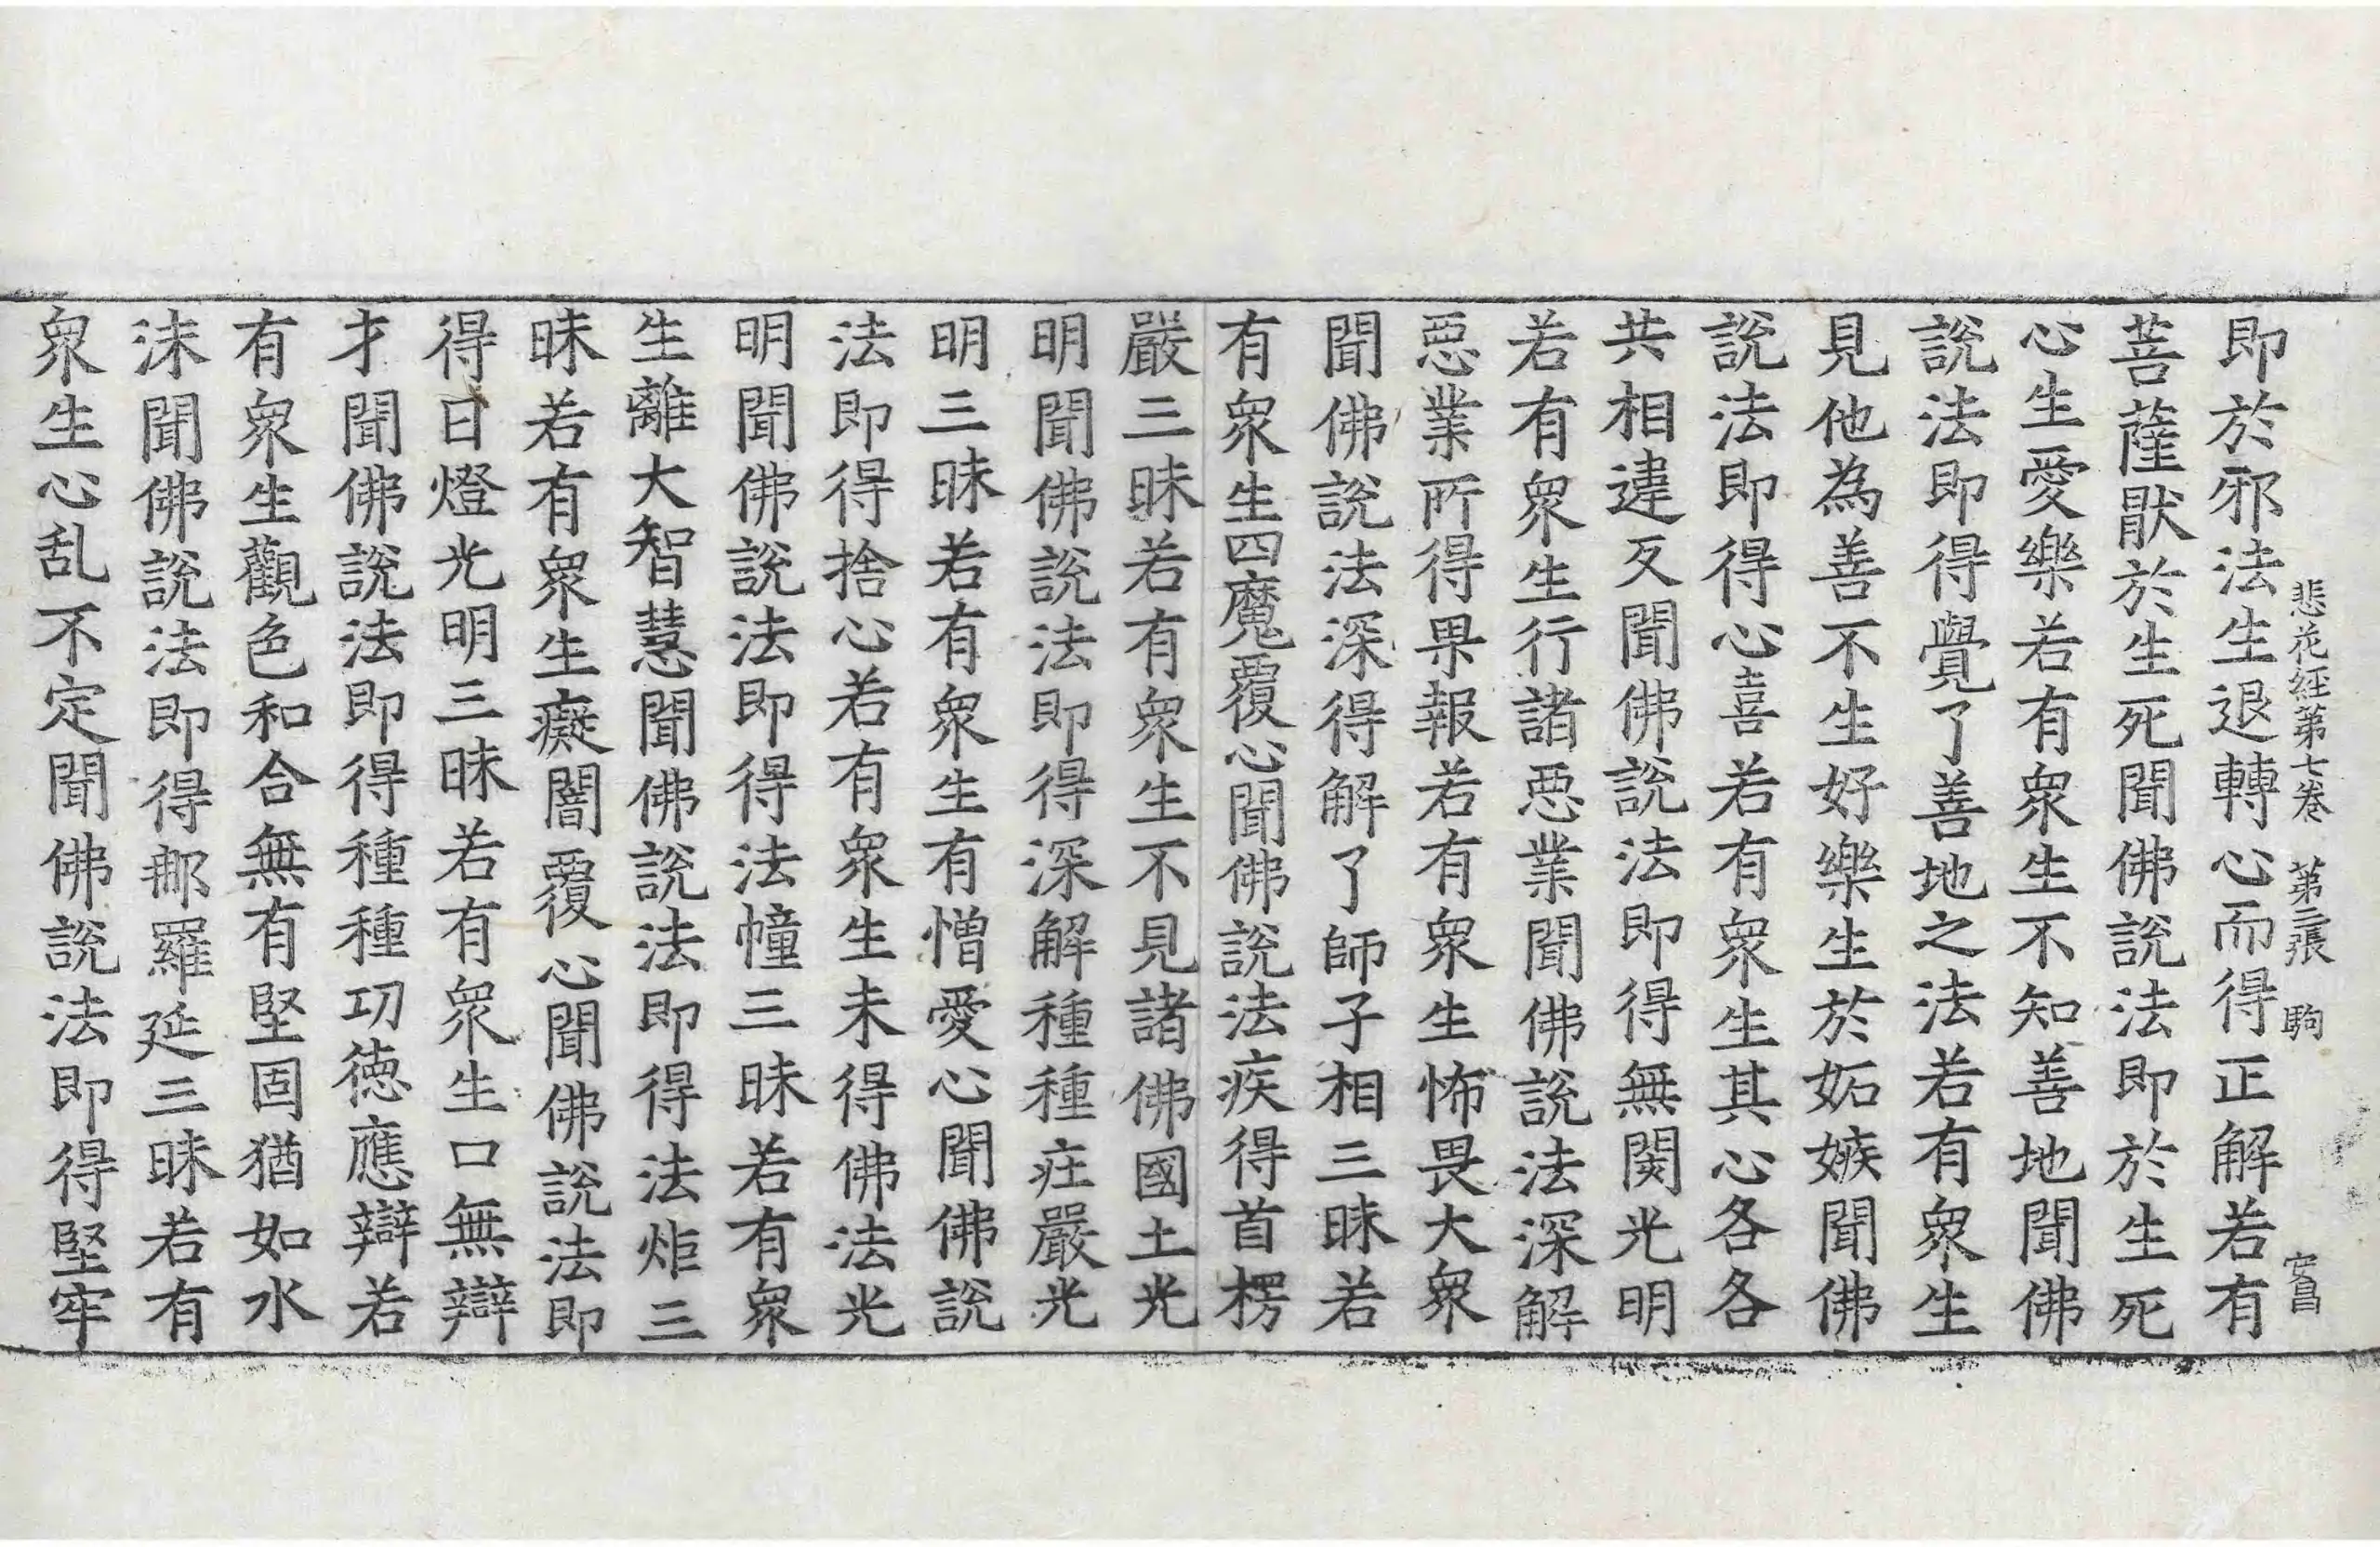 悲花經第七卷 第三張 駒 安昌
即於邪法生退轉心而得正解若有
菩薩猒於生死聞佛說法即於生死
心生愛樂若有衆生不知善地聞佛
說法即得覺了善地之法若有衆生
見他為善不生好樂生於妬嫉聞佛
說法即得心喜若有衆生其心各各
共相違反聞佛說法即得無閡光明
若有衆生行諸惡業聞佛說法深解
惡業所得果報若有衆生怖畏大衆
聞佛說法深得解了師子相三昧若
有衆生四魔覆心聞佛說法疾得首楞
嚴三昧若有衆生不見諸佛國土光
明聞佛說法即得深解種種莊嚴光
明三昧若有衆生有憎愛心聞佛說
法即得捨心若有衆生未得佛法光
明聞佛說法即得法幢三昧若有衆
生離大智慧聞佛說法即得法炬三
昧若有衆生癡闇覆心聞佛說法即
得日燈光明三昧若有衆生口無辯
才聞佛說法即得種種功德應辯若
有衆生觀色和合無有堅固猶如水
沫聞佛說法即得那羅延三昧若有
衆生心乱不定聞佛說法即得堅牢